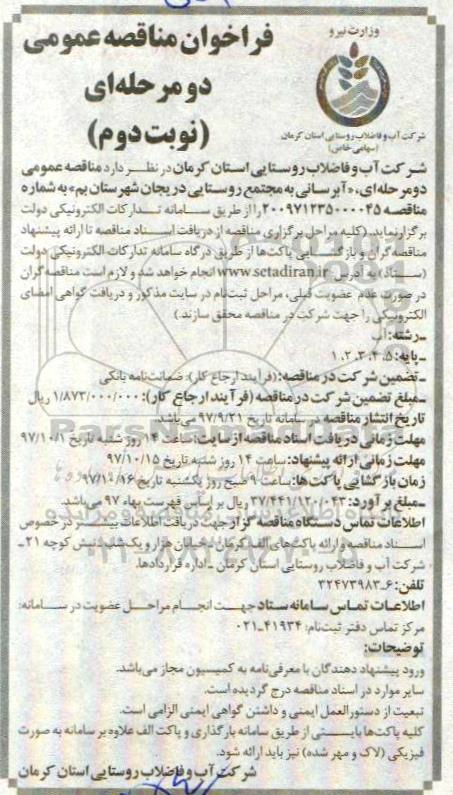 وزارت نیرو
شرکت آب و فاضلاب روستایی استان کرمان
(سهامی خاص)
فراخوان مناقصه عمومی
دو مرحله‌ای
(نوبت دوم)
شرکت آب و فاضلاب روستایی استان کرمان در نظر دارد مناقصه عمومی
دو مرحله‌ای، «آبرسانی به مجتمع روستایی دریجان شهرستان بم» به شماره
مناقصه ۲۰۰۹۷۱۲۳۵۰۰۰۰۴۵ را از طریق سامانه تدارکات الکترونیکی دولت
برگزار نماید. (کلیه مراحل برگزاری مناقصه از دریافت اسناد مناقصه تا ارائه پیشنهاد
مناقصه گران و بازگشایی پاکت‌ها از طریق درگاه سامانه تدارکات الکترونیکی دولت
(ستاد) به آدرس www.setadiran.ir انجام خواهد شد و لازم است مناقصه گران
در صورت عدم عضویت قبلی، مراحل ثبت‌نام در سایت مذکور و دریافت گواهی امضای
الکترونیکی را جهت شرکت در مناقصه محقق سازند.)
ـ رشته: آب
ـ پایه: ۵، ۴، ۳، ۲، ۱
ـ تضمین شرکت در مناقصه: (فرآیند ارجاع کار): ضمانت‌نامه بانکی
ـ مبلغ تضمین شرکت در مناقصه (فرآیند ارجاع کار): ۱/۸۷۳/۰۰۰/۰۰۰ ریال
تاریخ انتشار مناقصه در سامانه تاریخ ۹۷/۹/۲۱ می‌باشد.
مهلت زمانی دریافت اسناد مناقصه از سایت: ساعت ۱۴ روز شنبه تاریخ ۹۷/۱۰/۱
مهلت زمانی ارائه پیشنهاد: ساعت ۱۴ روز شنبه تاریخ ۹۷/۱۰/۱۵
زمان بازگشایی پاکت‌ها: ساعت ۹ صبح روز یکشنبه تاریخ ۹۷/۱۰/۱۶
ـ مبلغ برآورد: ۳۷/۴۴۱/۱۲۰/۰۴۳ ریال بر اساس فهرست بهاء ۹۷ می‌باشد.
اطلاعات تماس دستگاه مناقصه گزار جهت دریافت اطلاعات بیشتر در خصوص
اسناد مناقصه و ارائه پاکت‌های الف: کرمان ـ خیابان هزار و یک شب ـ نبش کوچه ۲۱ ـ
شرکت آب و فاضلاب روستایی استان کرمان ـ اداره قراردادها.
تلفن: ۶ـ۳۲۴۷۳۹۸۳
اطلاعات تماس سامانه ستاد جهت انجام مراحل عضویت در سامانه:
مرکز تماس دفتر ثبت‌نام: ۴۱۹۳۴ـ۰۲۱
توضیحات:
ورود پیشنهاد دهندگان با معرفی‌نامه به کمیسیون مجاز می‌باشد.
سایر موارد در اسناد مناقصه درج گردیده است.
تبعیت از دستورالعمل ایمنی و داشتن گواهی ایمنی الزامی است.
کلیه پاکت‌ها بایستی از طریق سامانه بارگذاری و پاکت الف علاوه بر سامانه به صورت
فیزیکی (لاک و مهر شده) نیز باید ارائه شود.
شرکت آب و فاضلاب روستایی استان کرمان